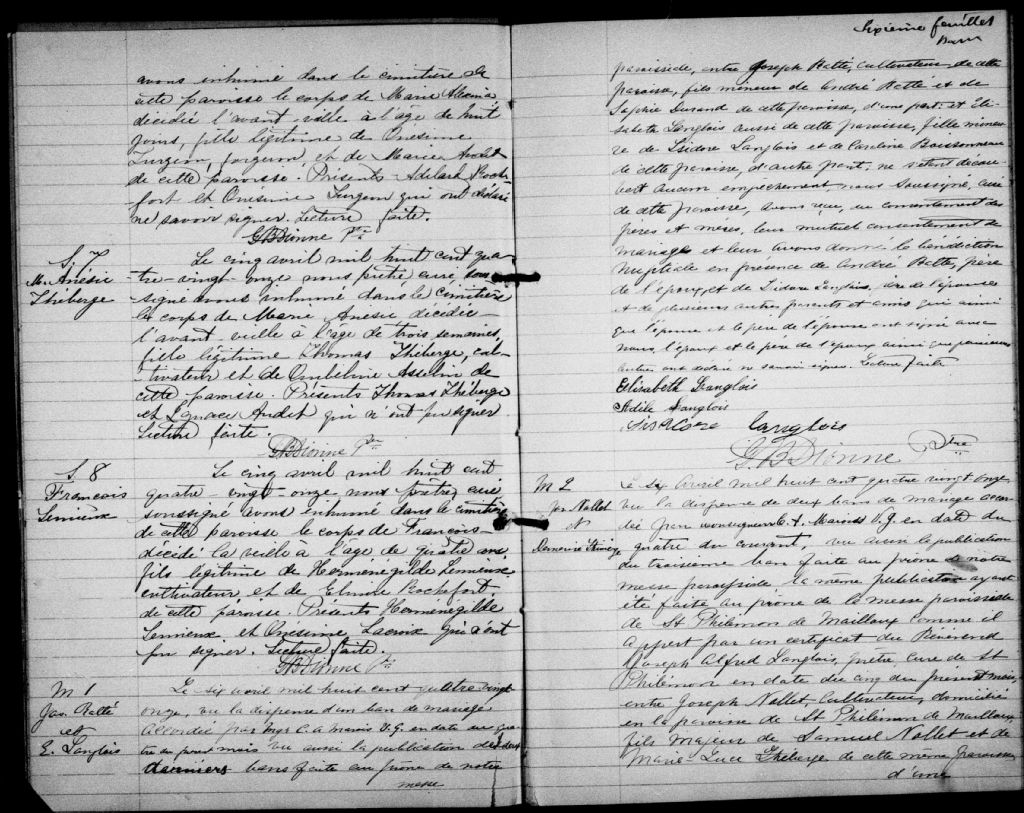 avons inhumé dans le cimetière de
cette paroisse le corps de Marie Alexina
décédée l'avant-veille à l'âge de huit
jours, fille légitime de Onésime
Turgeon, forgeron, et de Marie Audet
de cette paroisse. Présents Adélard Roch-
fort et Onésime Turgeon qui ont déclaré
ne savoir signer. Lecture faite.
GBDionne Ptre
S. 7
M. Anésie
Théberge
Le cinq avril mil huit cent qua
tre-vingt-onze nous prêtre, curé, sous
signé avons inhumé dans le cimetière
le corps de Marie Anésie décédée
l'avant veille à l'âge de trois semaines,
fille légitime Thomas Théberge, cul-
tivateur et de Ombeline Asselin de
cette paroisse. Présents Thomas Théberge
et Ignace Audet qui n'ont pu signer
Lecture faite.
GBDionne Ptre
S. 8
Francois
Lemieux
Le cinq avril mil huit cent
quatre-vingt-onze nous prêtre, curé
soussigné avons inhumé dans le cimetière
de cette paroisse le corps de Francois
décédé la veille à l'âge de quatre ans,
fils légitime de Herménégilde Lemieux
cultivateur et de Rochefort
de cette paroisse. Présents Herménégilde
Lemieux et Onésime Lacroix qui n'ont
pu signer. Lecture faite.
GBDionne Ptre
M 1
Jos. Ratté
et
E. Langlois
Le six avril mil huit cent quatre vingt
onze, vu la dispense d'un ban de mariage
accordée par Mgr C. A. Marois V. G. en date du qua
tre du present mois vu aussi la publication des deux
derniers bans faite au prône de notre
messe
Sixième feuillet
paroissiale, entre Joseph Ratté, cultivateur de cette
paroisse, fils mineur de André Ratté et de
Sophie Durand de cette paroisse, d'une part; et Eli-
sabeth Langlois aussi de cette paroisse, fille mineu
re de Isidore Langlois et de Caroline Boissonneau
de cette paroisse, d'autre part, ne s'étant décou-
vert aucun empêchement nous soussigné, curé
de cette paroisse, avons reçu, du consentement des
pères et mères, leur mutuel consentement de
mariage et leur avons donné la bénédiction
nuptiale en présence de André Ratté, père
de l'époux et de Isidore Langlois, père de l'épouse
et de plusieurs autres parents et amis qui ainsi
que l'épouse et le père de l'épouse ont signé avec
nous, l'époux et le père de l'époux ainsi que plusieurs
autres ont déclaré ne savoir signer. Lecture faite
Elisabeth Langlois
Adèle Langlois
Isidore Langlois
GBDionne Ptre
M 2
Jos. Nollet
et
Démerise Théberge
Le six Avril mil huit cent quatre vingt onze
vu la dispense de deux bans de mariage accor
dée par monseigneur C. A. Marois V. G. en date du
quatre du courant, vu aussi la publication
du troisième ban faite au prône de notre
messe paroissiale la même publication ayant
été faite au prône de la messe paroissiale
de St Philémon de Mailloux comme il
appert par un certificat du Révérend
Joseph Alfred Langlois, prêtre curé de St
Philémon en date du cinq du présent mois,
entre Joseph Nollet, Cultivateur, domicilié
en la paroisse de St Philémon de Mailloux
fils majeur de Samuel Nollet et de
Marie-Luce Théberge de cette même paroisse
d'une